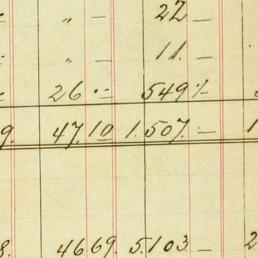 " — 22 —
" — 11. —
26 .— 549 .—
9. 47.10 1.507. — 1
8. 46 69. 5.103 — 2